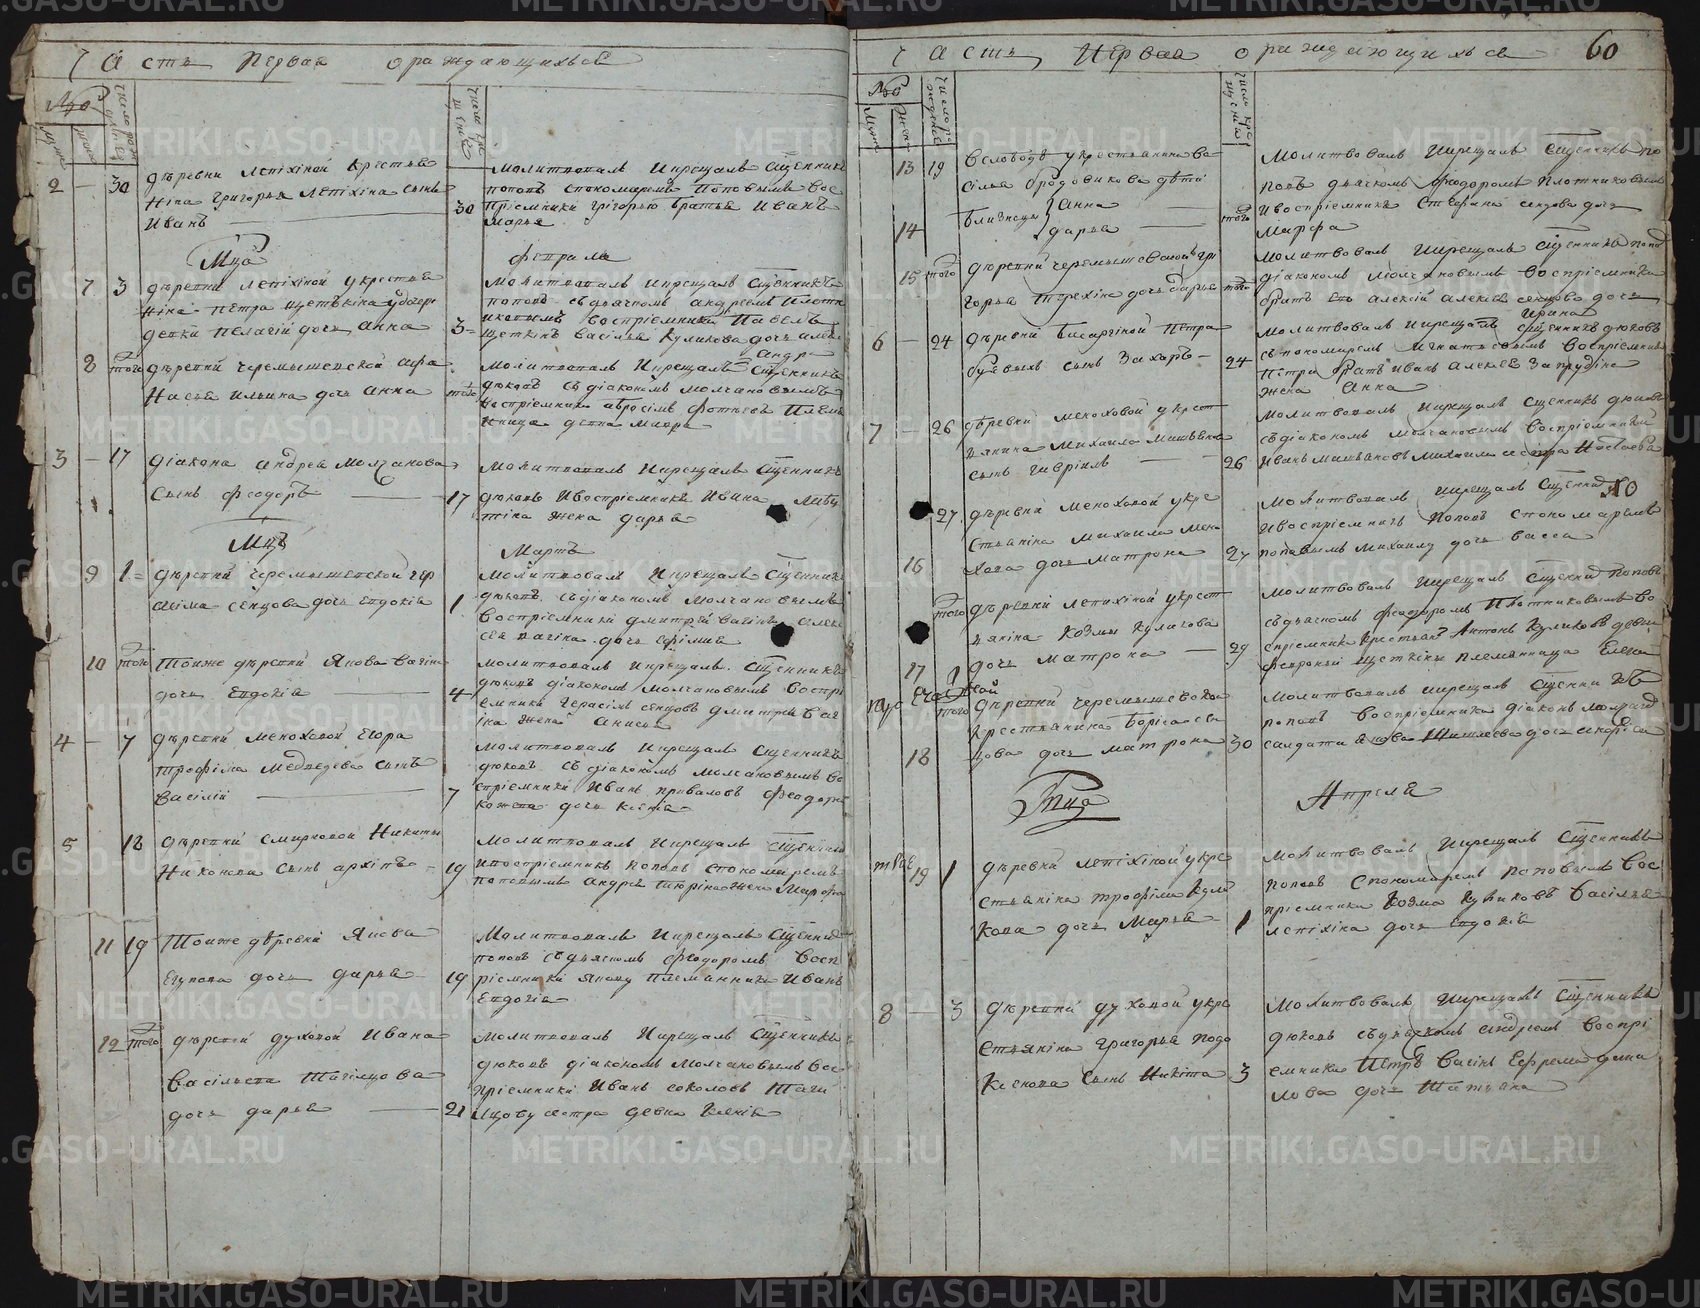 Часть Первая ораждающихъся
№б
2 — 30
деревни лепіхіной крестья
ніна Григорья лепіхіна сынъ
Иванъ
30
молитвовалъ икрещалъ сщенникъ
поповъ спономаремъ поповымъ вос
пріемники григорью братья Иванъ
марья
Мца
февраля
7 3
деревни лепіхіной укрестья
ніна петра щеткіна удочери
девки пелагіи дочь анна
3
молитвовалъ икрещалъ сщенникъ
поповъ съдьячкомъ андреемъ плотн
иковымъ воспріемники павелъ
щеткінъ васілья куликова дочь алек
андра
8 того
деревни черемышевской афа
насья ильина дочь анна
того
молитвовалъ икрещалъ сщенникъ
дюковъ съдіакономъ молчановымъ
воспріемники абросімъ фотеевъ плем
яница девка мавра
3 — 17
діакона андрея молчанова
сынъ феодоръ
17
молитвовалъ икрещалъ сщенникъ
дюковъ ивоспріемникъ ивана
жена дарья
Мцъ
Мартъ
9 1
деревни черемышевской гер
асіма сенцова дочь евдокія
1
молитвовалъ икрещалъ сщенник
дюковъ съдіакономъ молчановымъ
воспріемники дмитрей вагінъ алек
сея вагіна дочь ефімія
10 того
тоиже деревни якова вагіна
дочь евдокія
4
молитвовалъ икрещалъ сщенникъ
дюковъ діакономъ молчановымъ воспрі
емники герасімъ сенцовъ дмитрея ваг
іна жена анисья
4 — 7
деревни меноховой егора
трофіма медведева сынъ
васілій
7
молитвовалъ икрещалъ сщенникъ
дюковъ съдіакономъ молчановымъ во
спріемники иванъ приваловъ феодора
дочь ксенія
5 18
деревни смирновой никиты
никонова сынъ архіпъ
19
молитвовалъ икрещалъ сщенникъ
ивоспріемникъ поповъ спономаремъ
поповымъ андрея тюріна жена марфа
11 19
тоиже деревни якова
егупова дочь дарья
19
молитвовалъ икрещалъ сщенникъ
поповъ съдьячкомъ феодоромъ восп
ріемники якову племянники иванъ
евдокія
12 того
деревни духовой ивана
васільева тагілцова
дочь дарья
21
молитвовалъ икрещалъ сщенникъ
дюковъ діакономъ молчановымъ вос
пріемники иванъ соколовъ таги
лцову сестра девка ксенія
Часть Первая ораждающихъся 60
№б
13 19
вслободе укрестьянина ва
сілья бродовикова дети
близнецы анна
14
дарья
того
молитвовалъ икрещалъ сщенникъ по
повъ дьячкомъ феодоромъ плотниковымъ
ивоспріемникъ стефана сенцова дочь
марфа
15 того
деревни черемышевской гри
горья терехіна дочь дарья
того
молитвовалъ икрещалъ сщенникъ попов
діакономъ молчановымъ воспріемники
братъ ея алексій алексея сенцова дочь
ирина
6 — 24
деревни бисаргіной петра
буевыхъ сынъ захаръ
24
молитвовалъ икрещалъ сщенникъ дюковъ
съпономаремъ игнатьевымъ воспріемники
петра братъ иванъ алексея запрудіна
жена анна
7 — 26
деревни меноховой укрест
ьянина михаила мишьянова
сынъ гавріилъ
26
молитвовалъ икрещалъ сщенникъ дюковъ
съдіакономъ молчановымъ воспріемники
иванъ мишьяновъ михаила сестра
27
деревни меноховой укре
стьяніна михаила мено
16
хова дочь матрона
27
молитвовалъ икрещалъ сщенник
ивоспріемникъ поповъ спономаремъ
поповымъ михаилу дочь васса
того
деревни лепихіной укрест
ьяніна козмы куликова
17
дочь матрона
29
молитвовалъ икрещалъ сщенник поповъ
съдьячкомъ феодоромъ плотниковымъ во
спріемники крестьян антонъ куликовъ девки
февроньи щеткіны племянница елена
того
деревни черемышевской
крестьянина борісасен
18
цова дочь матрона
30
молитвовалъ икрещалъ сщенникъ
поповъ воспріемники діаконъ молчанов
салдата якова дочь
Мца
Апреля
19 1
деревни лепіхіной укре
стьяніна трофіма кули
кова дочь марья
1
молитвовалъ икрещалъ сщенникъ
поповъ спономаремъ поповымъ вос
пріемники козма куликовъ васілья
лепіхіна дочь евдокія
8 — 3
деревни духовой укре
стьяніна григорья подо
ксенова сынъ никіта
3
молитвовалъ икрещалъ сщенникъ
дюковъ съдьячкомъ андреемъ воспрі
емники петръ вагінъ ефрема дани
лова дочь татьяна